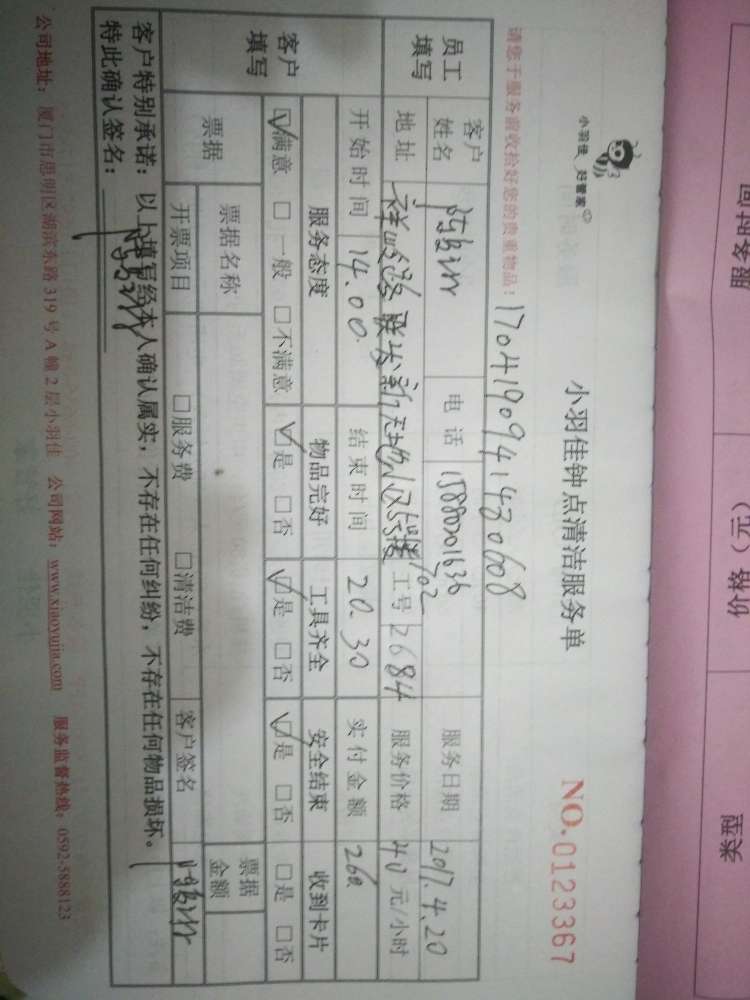 小羽佳 好管家
小羽佳钟点清洁服务单
NO.0123367
请您于服务前收拾好您的贵重物品!
1704190941430608
员工填写
客户姓名
电话 15880001636
服务日期 2017.4.20
地址 祥 路联发新天地
702
工号 2684
服务价格 40元/小时
开始时间 14.00
结束时间 20.30
实付金额 260
客户填写
服务态度 物品完好 工具齐全 安全结束 收到卡片
☑满意 □一般 □不满意 ☑是 □否 ☑是 □否 ☑是 □否 □是 □否
票据
票据名称
票据金额
开票项目 □服务费 □清洁费 客户签名
客户特别承诺:以上填写经本人确认属实,不存在任何纠纷,不存在任何物品损坏。
特此确认签名:
公司地址:厦门市思明区湖滨东路319号A幢2层小羽佳 公司网站:www.xiaoyujia.com 服务监督热线:0592-5888123
服务时间
价格(元)
类型